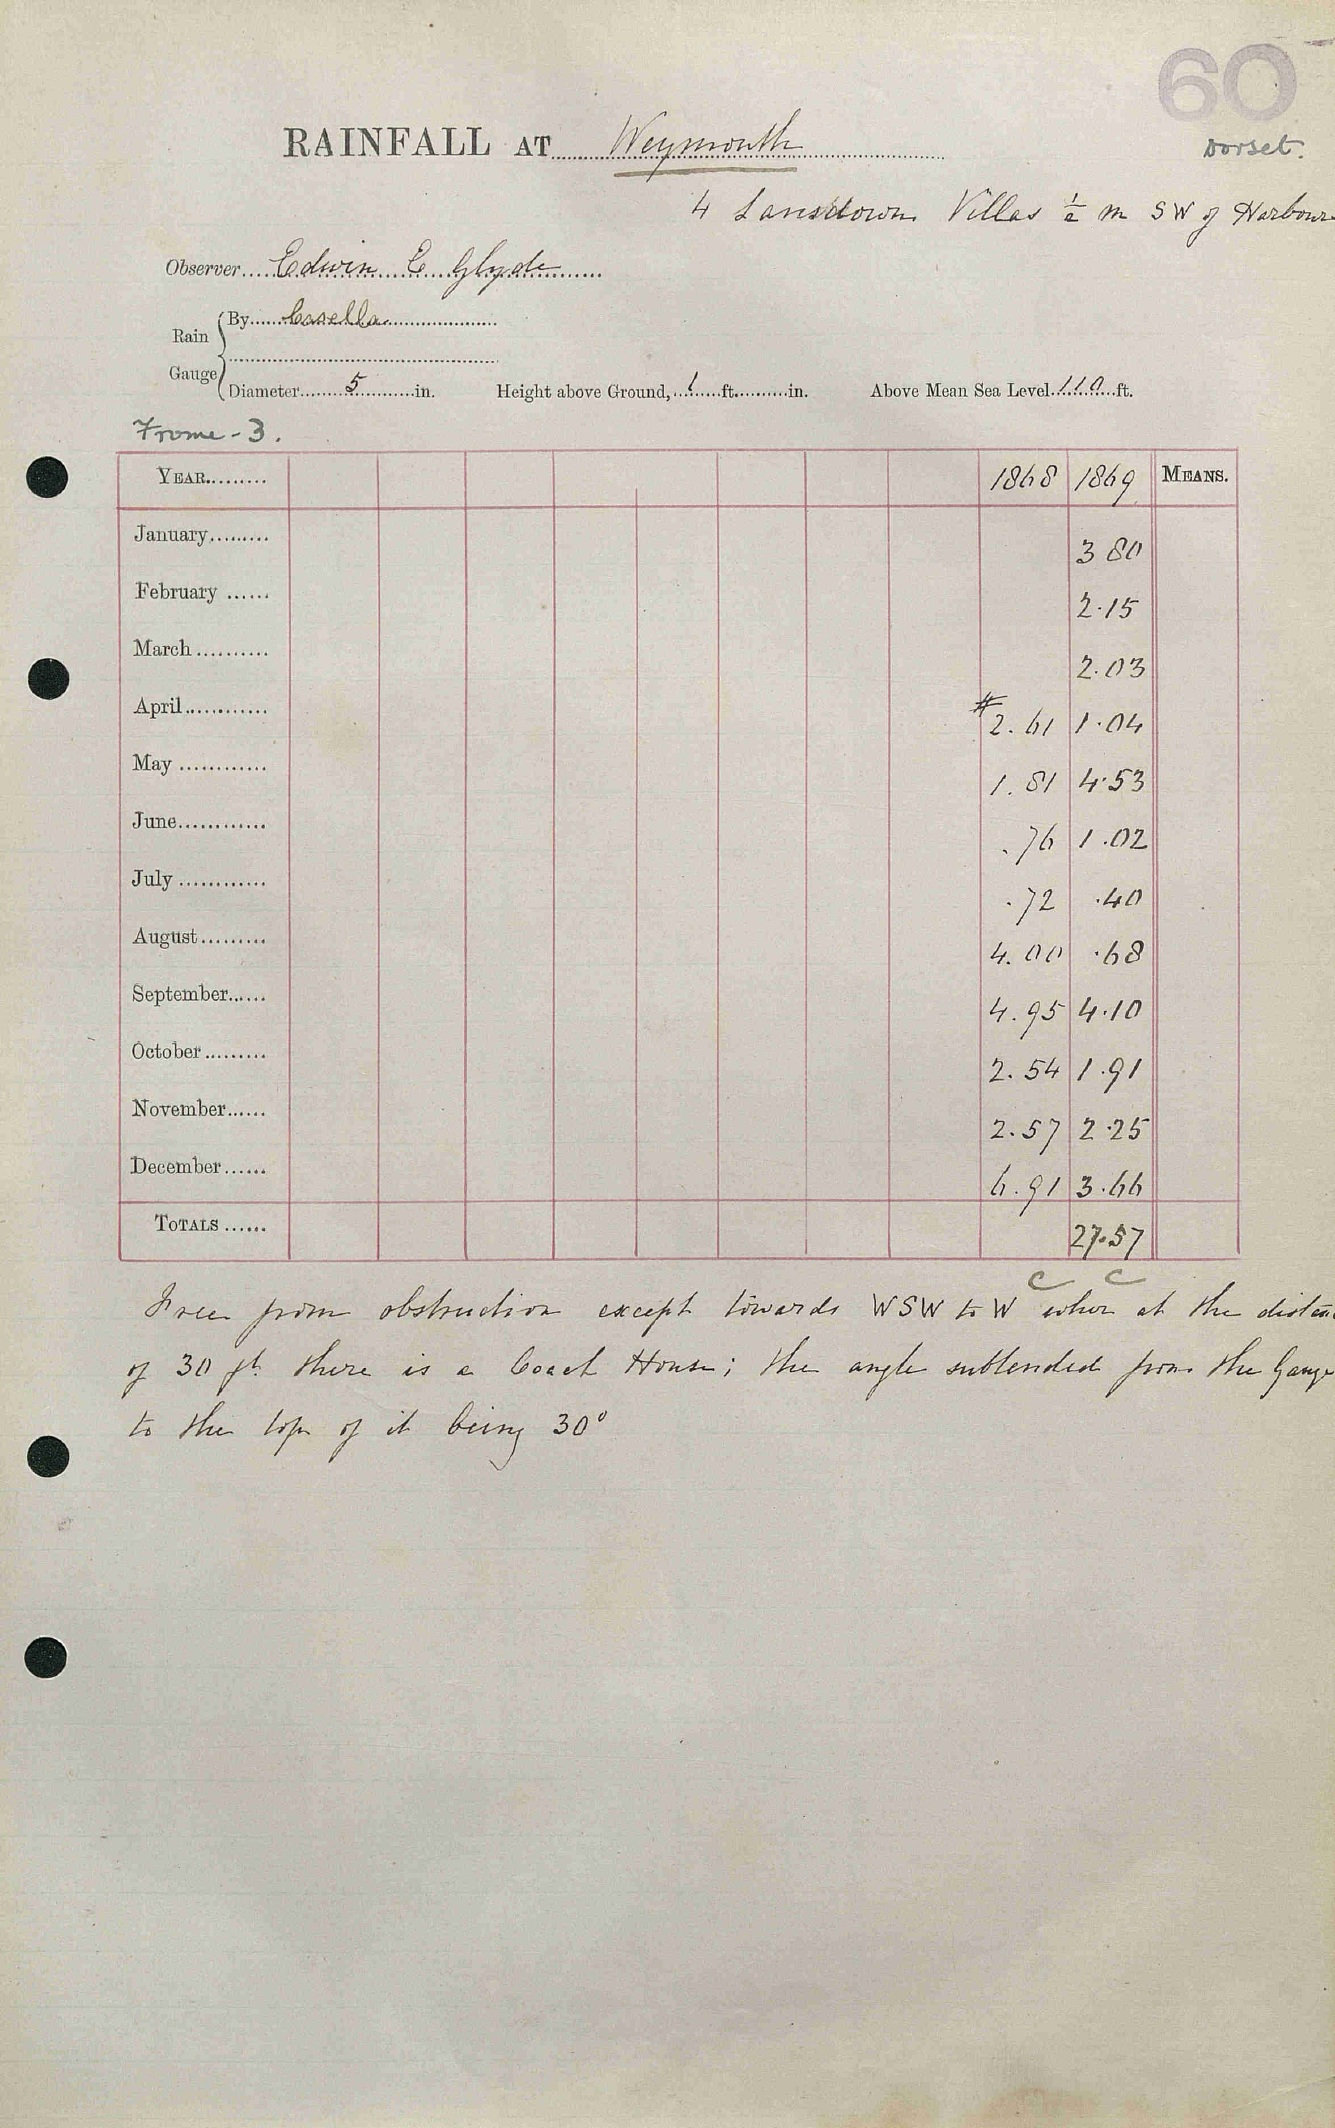 60
RAINFALL AT Weymouth
Dorset.
4 Lansdown Villas ½ m SW of Harbour
Observer Edwin E Glyde
Rain Gauge
By Casella
Diameter 5 in. Height above Ground, 1 ft. in. Above Mean Sea Level 110 ft.
Frome - 3.
YEAR 1868 1869 MEANS.
January 3 80
February 2.15
March 2.03
April # 2.61 1.04
May 1.81 4.53
June .76 1.02
July .72 .40
August 4.00 .68
September 4.95 4.10
October 2.54 1.91
November 2.57 2.25
December 6.91 3.66
TOTALS 27.57
C C
Free from obstruction except towards WSW to W when at the distan
of 30 ft. there is a Coach House; the angle subtended from the Gauge
to the top of it being 30°